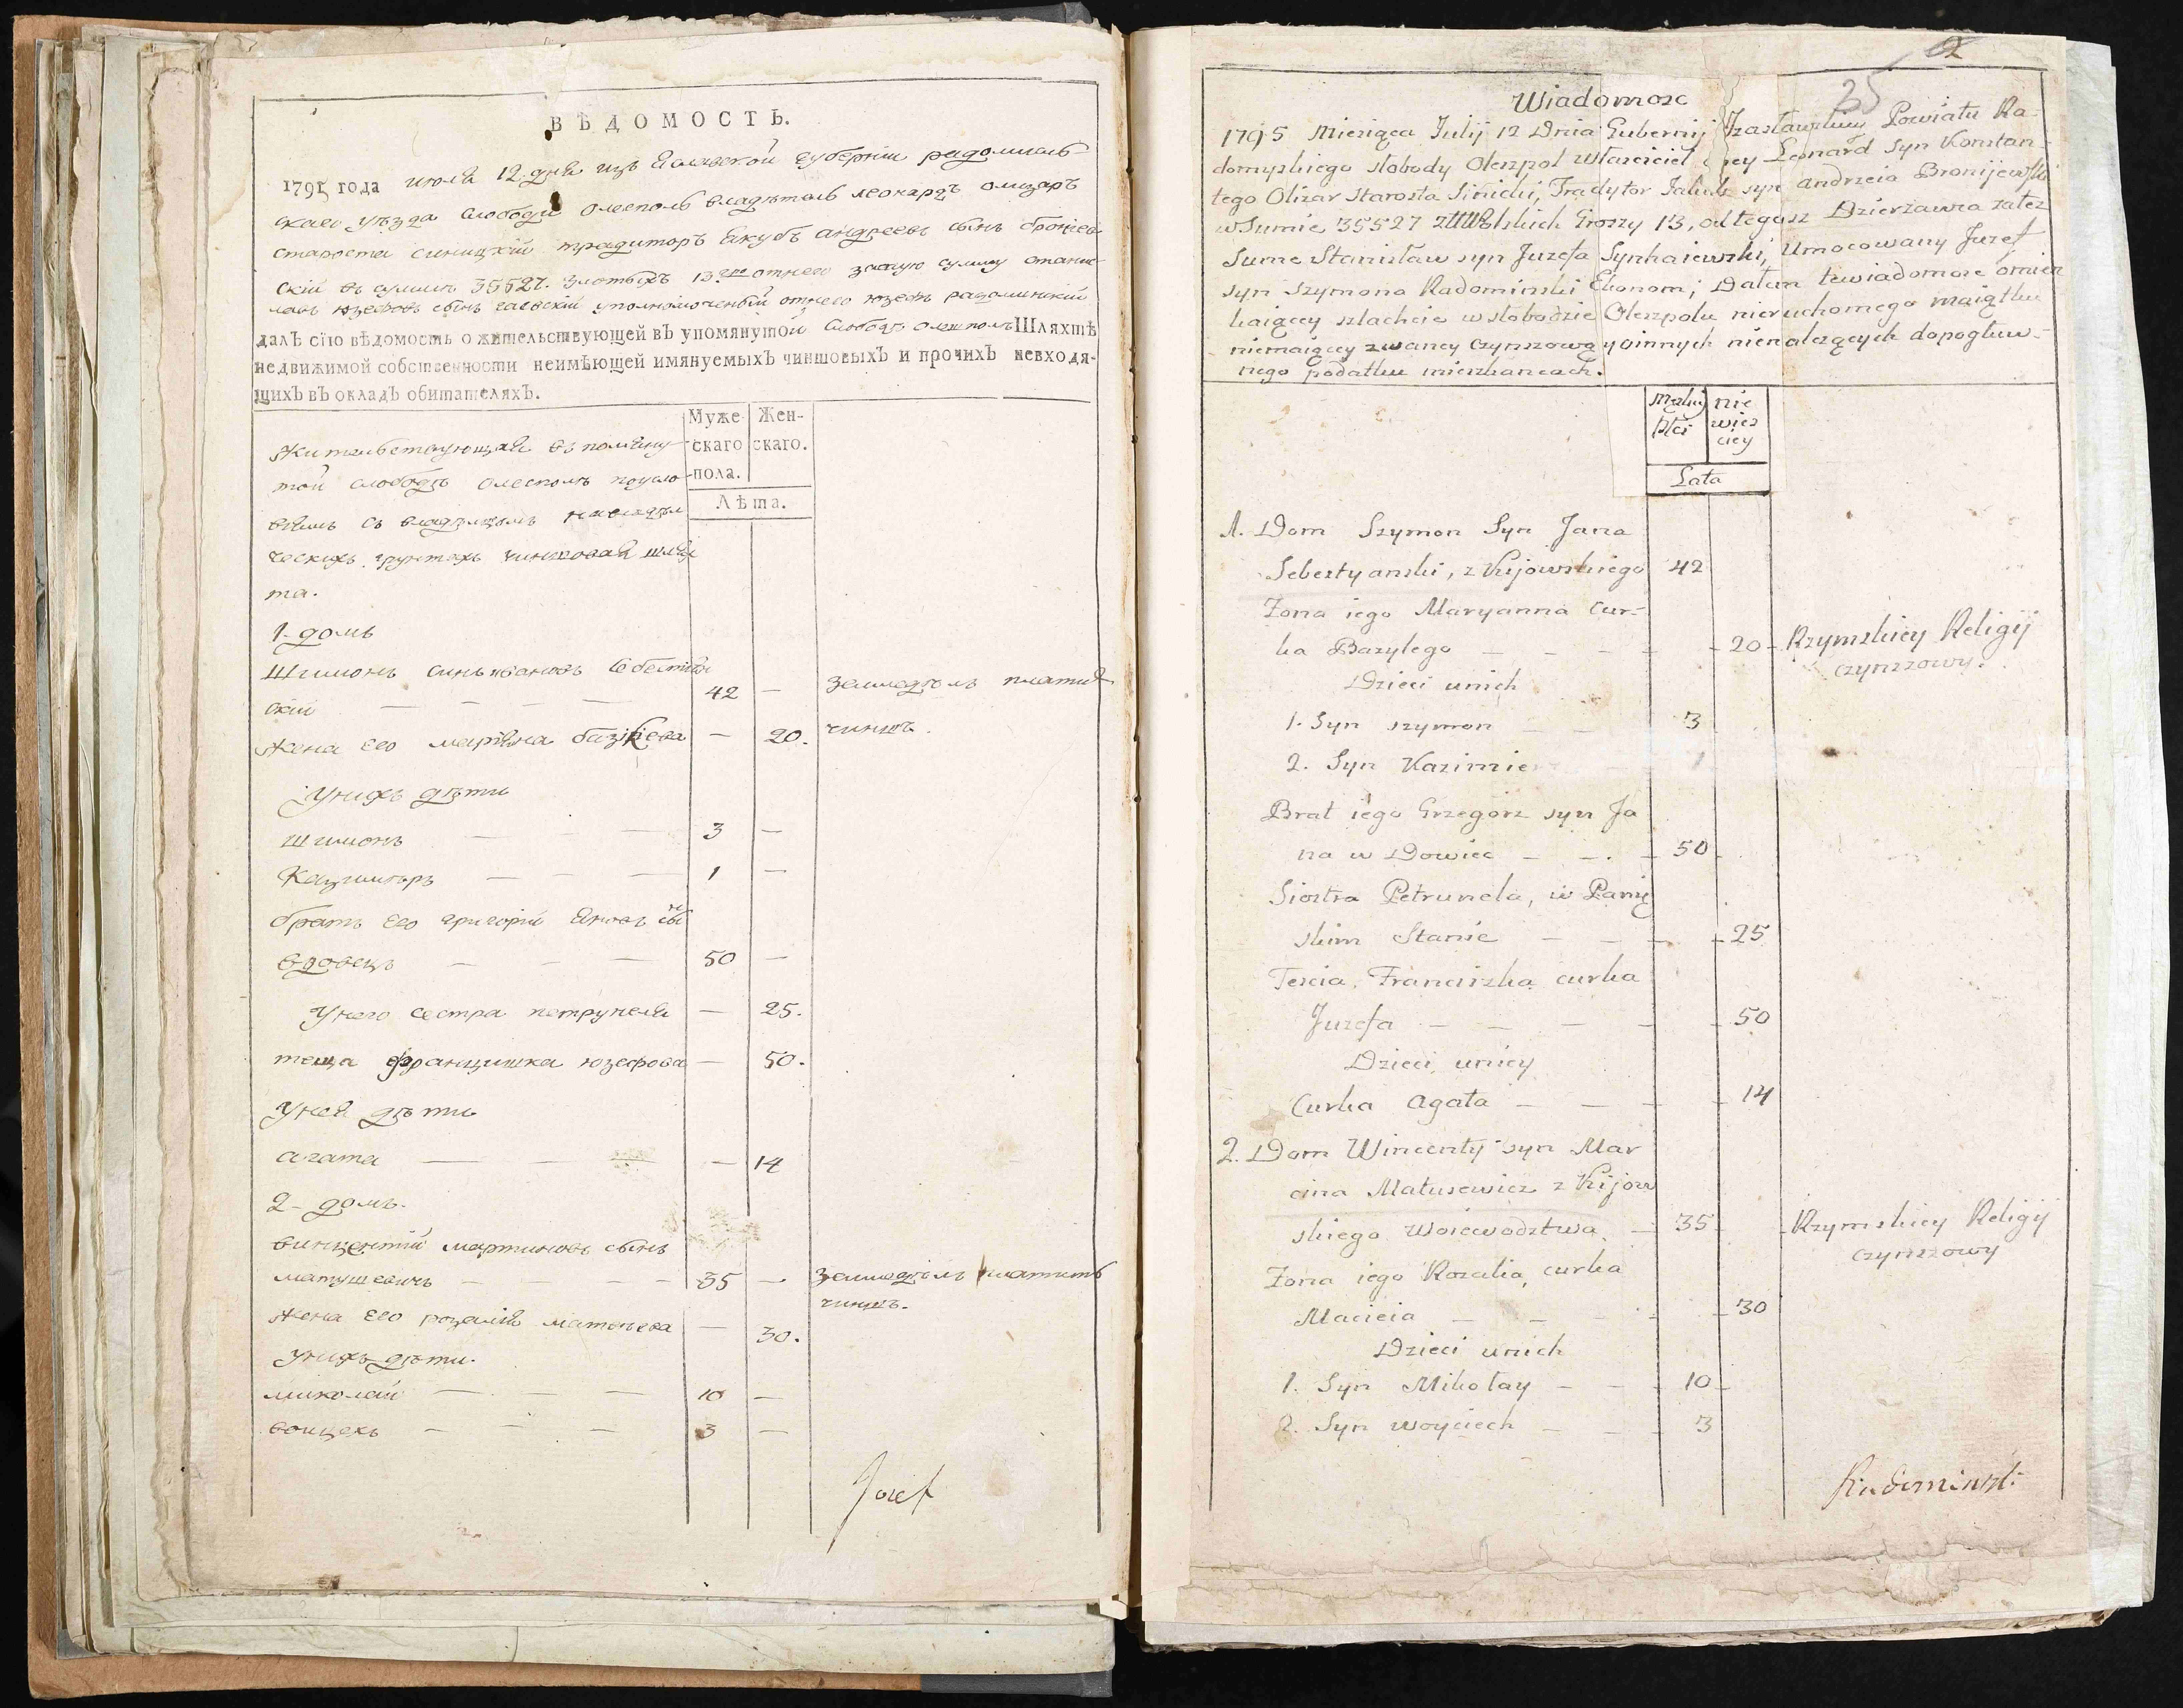 ВѢДОМОСТЬ.
1795 года июля 12. дня изъ Изяславской губернии радомисль-
скаго уѣзда слободи Олесполь владѣтель леонардъ олизаръ
староста синицкий традиторъ Якубъ андреевъ сынъ бронiев
ский въ сумми 35527. злотыхъ 13. отнего заную сумму станис-
лавъ юзефовъ сынъ уполномоченный отнего юзефъ радоминский
далъ сїю вѣдомость о жительствующей въ упомянутой слободѣ олешполь Шляхтѣ
недвижимой собственности неимѣющей имянуемыхъ чиншовыхъ и прочихъ невходя-
щихъ въ окладъ обитателяхъ.
Муже- Жен-
скаго скаго.
пола.
Лѣта.
Жительствующая въ помяну-
той слободѣ Олесполѣ поусло-
вiямъ съ владѣльцомъ навладѣл
ческихъ грунтахъ чиншовая шлях
та.
1- домъ
Шимонъ синъ Ивановъ Себестiян
ский — — — 42 — земледѣлъ платит
Жена его марiяна базилева — 20. чиншъ.
Унихъ дѣти
Шимонъ — — 3 —
Казимѣръ — — — 1 —
братъ его григорий Яновъ сы нъ
вдовецъ — — — 50 —
Унего сестра петрунеля — 25.
теща францишка юзефова — 50.
Уней дѣти
агата — — — — 14
2- домъ.
винцентий мартиновъ сынъ
матушевичъ — — — — 35 — земледѣлъ платитъ
чиншъ.
Жена его розалiя матвѣева — 30.
Унихъ дѣти.
миколай — — — 10 —
войцехъ — — — 3 —
Jozef
2
25
Wiadomosc
1795 Miesiąca Julij 12 Dnia Gubernij Izasławskiey Powiatu Ra-
domyskiego słobody Oleszpol własciciel oney Leonard syn Konstan-
tego Olizar Starosta Sinicki, Tradytor Jakub syn andrzeia Bronijewski
w Sumie 35527 złł Polskich Groszy 13, od tegosz Dzierzawca zatez
Sume Stanisław syn Juzefa Synhaiewski, Umocowany Juzef
syn Szymona Radominski Ekonom; Dałem tewiadomosc omiesz
kaiącey szlachcie w słobodzie Oleszpolu nieruchomego maiątku
niemaiącey zwaney czynszową y innych nienalezących dopogłuw-
nego podatku mieszkancach.
Męskiy nie
płci wies
ciey
Lata
1. Dom Szymon Syn Jana
Sebestyanski, z Kijowskiego 42
Zona iego Maryanna Cur-
ka Bazylego — — — — 20 Rzymskiey Religij
czynszowy.
Dzieci unich
1. Syn szymon — — 3
2. Syn Kazimierz — 1
Brat iego Grzegorz syn Ja
na w Dowiec — — . — 50
Siostra Petrunela, w Panię
skim Stanie — — — 25
Tescia, Franciszka curka
Juzefa — — — — 50
Dzieci uniey
Curka agata — — — 14
2. Dom Wincenty syn Mar
cina Matusewicz z Kijow
skiego Woiewodztwa — 35 Rzymskiey Religij
czynszowy
Zona iego Rozalia, curka
Macieia — — — — 30
Dzieci unich
1. Syn Mikołay — — 10
2. Syn woyciech — — 3
Radominski